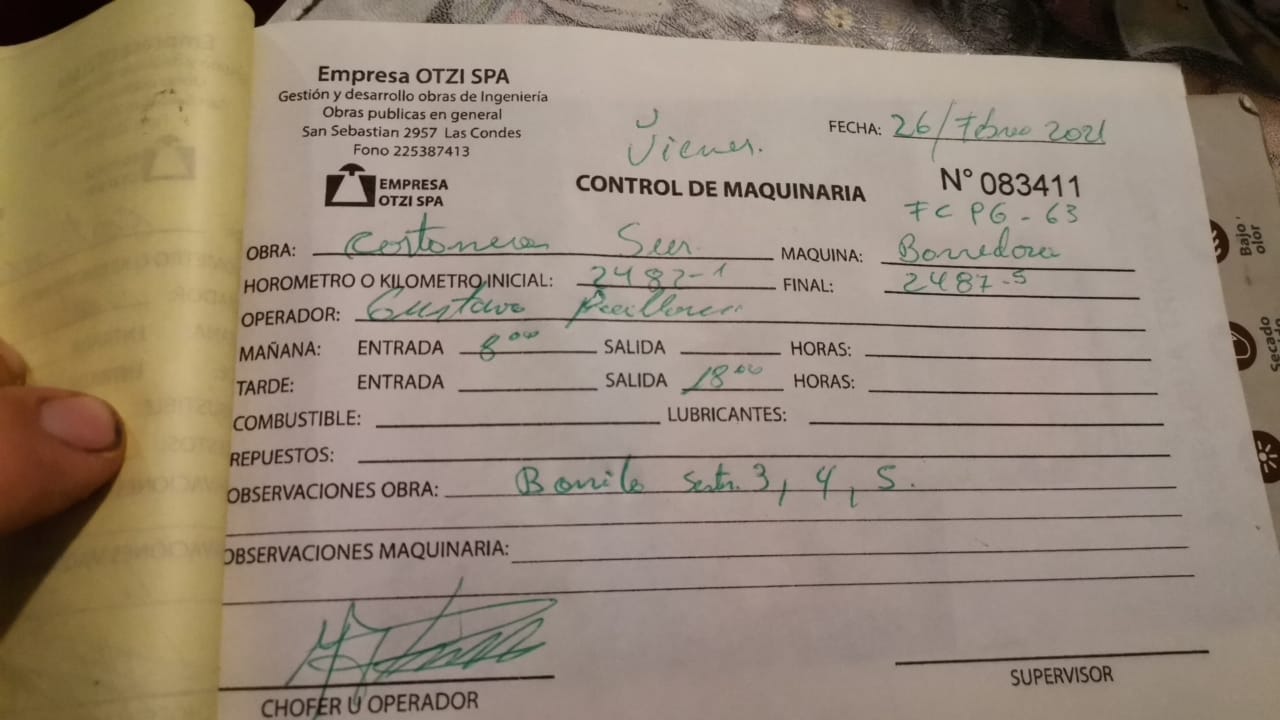 Empresa OTZI SPA
Gestión y desarrollo obras de Ingeniería
Obras publicas en general
San Sebastian 2957 Las Condes
Fono 225387413
EMPRESA
OTZI SPA
Viernes.
FECHA: 26/Febrero 2021
CONTROL DE MAQUINARIA
N° 083411
FC PG - 63
OBRA: Costanera Sur
MAQUINA: Barredora
HOROMETRO O KILOMETRO INICIAL: 2482-1 FINAL: 2487-5
OPERADOR: Gustavo
MAÑANA: ENTRADA 8:00 SALIDA HORAS:
TARDE: ENTRADA SALIDA 18:00 HORAS:
COMBUSTIBLE: LUBRICANTES:
REPUESTOS:
OBSERVACIONES OBRA: 3, 4, 5.
OBSERVACIONES MAQUINARIA:
CHOFER U OPERADOR
SUPERVISOR
Bajo
olor
Secado